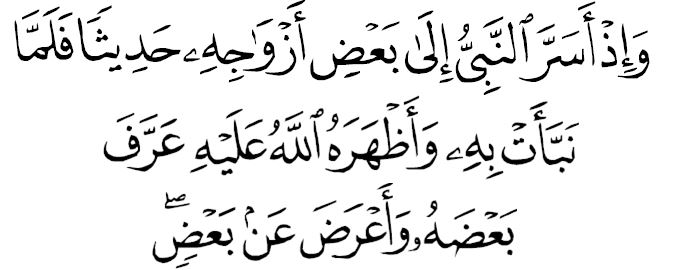 وَإِذۡ أَسَرَّ ٱلنَّبِيُّ إِلَىٰ بَعۡضِ أَزۡوَٰجِهِۦ حَدِيثٗا فَلَمَّا
نَبَّأَتۡ بِهِۦ وَأَظۡهَرَهُ ٱللَّهُ عَلَيۡهِ عَرَّفَ
بَعۡضَهُۥ وَأَعۡرَضَ عَنۢ بَعۡضٖۖ